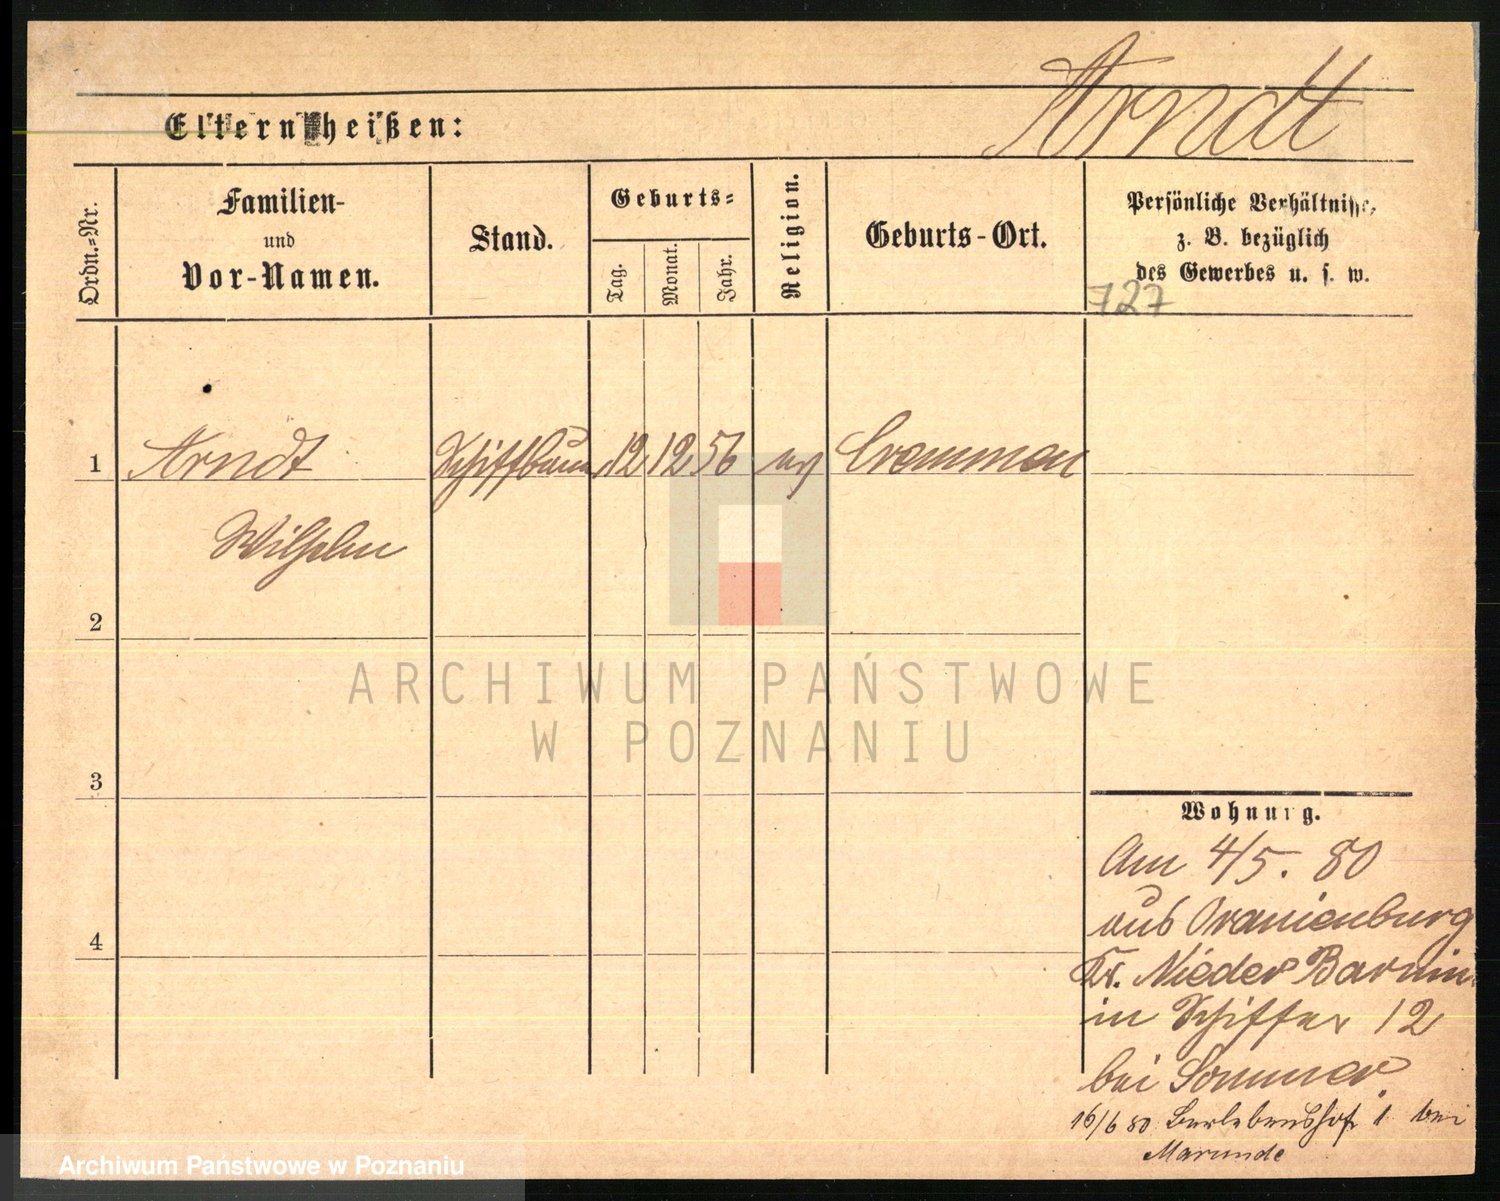 Arndt
Eltern heißen:
Ordn.-Nr.
Familien-
und
Vor-Namen.
Stand.
Geburts-
Tag.
Monat.
Jahr.
Religion.
Geburts-Ort.
Persönliche Verhältnisse,
z. B. bezüglich
des Gewerbes u. s. w.
727
1 Arndt Schiffbaum 12 12 56 ev Cremmen
Wilhelm
2
ARCHIWUM PAŃSTWOWE
W POZNANIU
3
Wohnung.
Am 4/5. 80
aus Oranienburg
Kr. Nieder Barnim
in Schiffer 12
bei Sommer
4
16/6 80 1 bei
Marunde
Archiwum Państwowe w Poznaniu